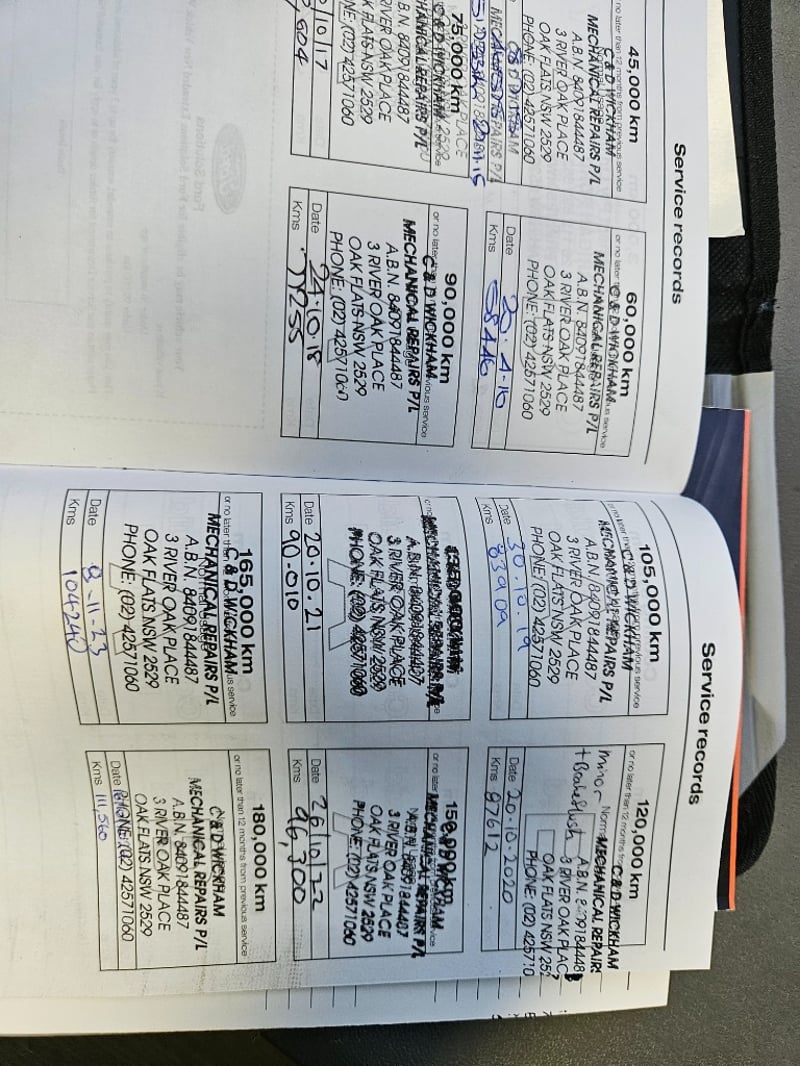 Service records
45,000 km
no later than 12 months from previous service
C & D WICKHAM
MECHANICAL REPAIRS P/L
A.B.N. 84091844487
3 RIVER OAK PLACE
OAK FLATS NSW 2529
PHONE: (02) 42571060
60,000 km
or no later
C & D WICKHAM
us service
MECHANICAL REPAIRS P/L
A.B.N. 84091844487
3 RIVER OAK PLACE
OAK FLATS NSW 2529
PHONE: (02) 42571060
Date 20.4-16
Kms 68446
75,000 km
C & D WICKHAM
MECHANICAL REPAIRS P/L
A.B.N. 84091844487
RIVER OAK PLACE
K FLATS NSW 2529
NE: (02) 42571060
/10/17
604
90,000 km
or no later
C & D WICKHAM
vious service
MECHANICAL REPAIRS P/L
A.B.N. 84091844487
3 RIVER OAK PLACE
OAK FLATS NSW 2529
PHONE: (02) 42571060
Date 24.10.18
Kms 79255
Service records
105,000 km
C & D WICKHAM
previous service
MECHANICAL REPAIRS P/L
A.B.N. 84091844487
3 RIVER OAK PLACE
OAK FLATS NSW 2529
PHONE: (02) 42571060
Date 30.10.19
Kms 83909
120,000 km
or no later than 12 months from
C & D WICKHAM
minor Norm MECHANICAL REPAIRS
A.B.N.
3 RIVER OAK PLAC
OAK FLATS NSW 25
PHONE: (02) 425710
Date 20.10.2020
Kms 87612
A.B.N. 84091844487
3 RIVER OAK PLACE
OAK FLATS NSW 2529
PHONE: (02) 42571060
Date 20.10.21
Kms 90-010
MECHANICAL REPAIRS P/L
A.B.N. 84091844487
3 RIVER OAK PLACE
OAK FLATS NSW 2529
PHONE: (02) 42571060
Date 26/10/22
Kms 96,300
165,000 km
or no later than
C & D WICKHAM
us service
MECHANICAL REPAIRS P/L
A.B.N. 84091844487
3 RIVER OAK PLACE
OAK FLATS NSW 2529
PHONE: (02) 42571060
Date 8-11-23
Kms 104240
180,000 km
or no later than 12 months from previous service
C & D WICKHAM
MECHANICAL REPAIRS P/L
A.B.N. 84091844487
3 RIVER OAK PLACE
OAK FLATS NSW 2529
Date PHONE: (02) 42571060
Kms 111,560